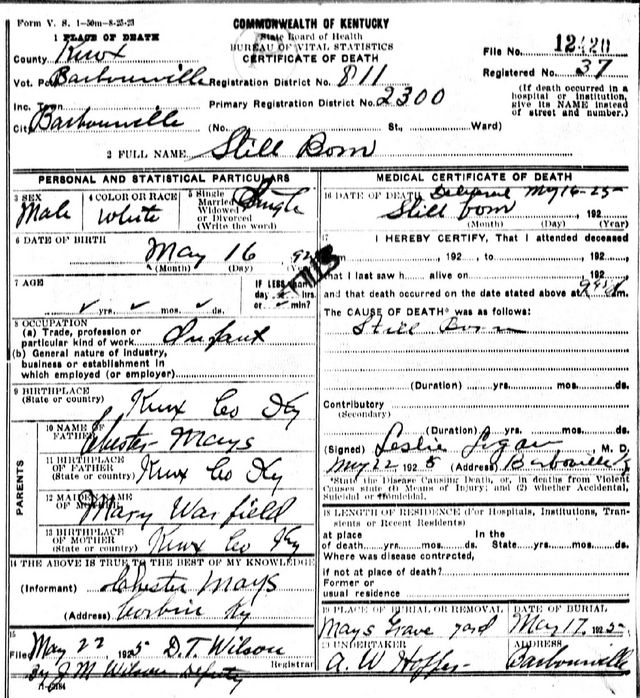 Form V. S. 1-50m-8-25-23
COMMONWEALTH OF KENTUCKY
State Board of Health
BUREAU OF VITAL STATISTICS
CERTIFICATE OF DEATH
1 PLACE OF DEATH
County Knox
File No. 12420
Vot. Barbourville Registration District No. 811
Registered No. 37
Inc. Town Primary Registration District No. 2300
(If death occurred in a hospital or institution, give its NAME instead of street and number.)
City Barbourville (No. St., Ward)
2 FULL NAME Still Born
PERSONAL AND STATISTICAL PARTICULARS
3 SEX Male
4 COLOR OR RACE White
5 Single Married Widowed or Divorced (Write the word) Single
6 DATE OF BIRTH May 16 192
(Month) (Day)
7 AGE
yrs. mos. ds.
IF LESS than
day hrs.
or min?
8 OCCUPATION
(a) Trade, profession or
particular kind of work Infant
(b) General nature of industry,
business or establishment in
which employed (or employer)
9 BIRTHPLACE
(State or country) Knox Co Ky
PARENTS
10 NAME OF
FATHER Chester Mays
11 BIRTHPLACE
OF FATHER
(State or country) Knox Co Ky
12 MAIDEN NAME
OF MOTHER Mary Warfield
13 BIRTHPLACE
OF MOTHER
(State or country) Knox Co Ky
14 THE ABOVE IS TRUE TO THE BEST OF MY KNOWLEDGE
(Informant) Chester Mays
(Address) Corbin Ky
15
Filed May 22 1925 D. T. Wilson
Registrar
By J M Wilson Deputy
MEDICAL CERTIFICATE OF DEATH
16 DATE OF DEATH Delivered May 16-25-
Still born, 192
(Month) (Day) (Year)
17 I HEREBY CERTIFY, That I attended deceased
, 192 , to , 192 ,
that I last saw h alive on , 192 ,
and that death occurred on the date stated above at m.
The CAUSE OF DEATH* was as follows:
Still Born
(Duration) yrs. mos. ds.
Contributory
(Secondary)
(Duration) yrs. mos. ds.
(Signed) Leslie Logan, M. D.
May 22 1925 (Address) Barbourville
*State the Disease Causing Death, or, in deaths from Violent
Causes state (1) Means of Injury; and (2) whether Accidental,
Suicidal or Homicidal.
18 LENGTH OF RESIDENCE (For Hospitals, Institutions, Transients or Recent Residents)
at place In the
of death yrs. mos. ds. State yrs. mos. ds.
Where was disease contracted,
if not at place of death?
Former or
usual residence
19 PLACE OF BURIAL OR REMOVAL
Mays Grave yard
DATE OF BURIAL
May 17, 1925
20 UNDERTAKER
A. W. Hopper
ADDRESS
Barbourville